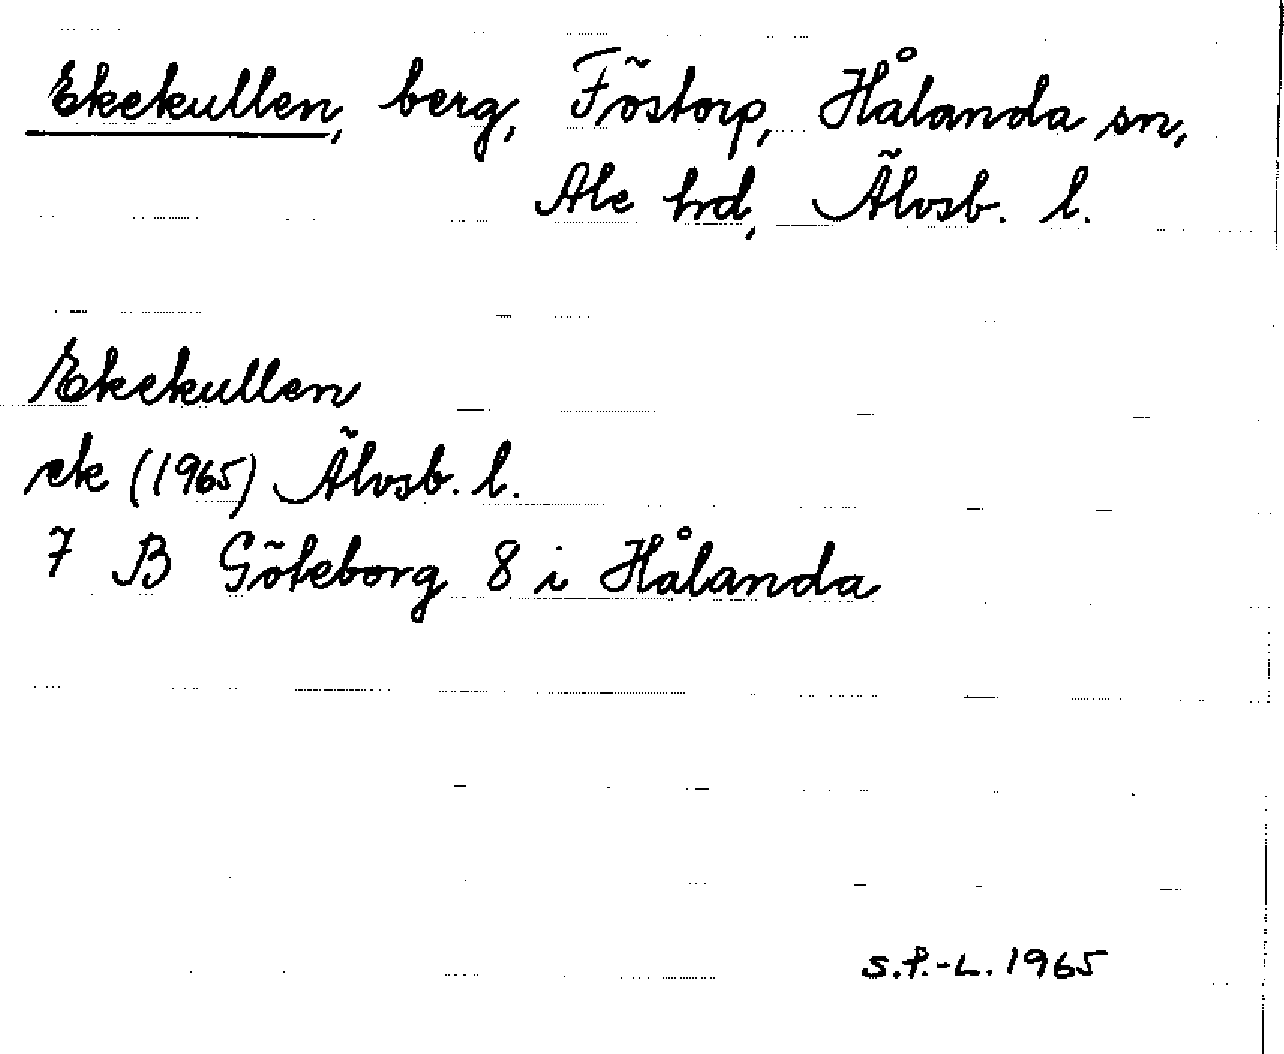 Ekekullen, berg, Föstorp, Hålanda sn,
Ale hrd, Älvsb. l.
Ekekullen
ek (1965) Älvsb. l.
7 B Göteborg 8 i Hålanda
S.P.-L. 1965